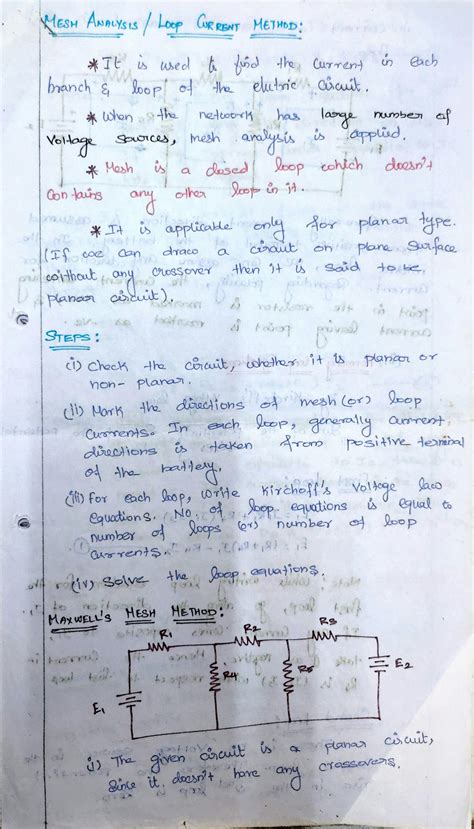 MESH ANALYSIS / LOOP CURRENT METHOD:
* It is used to find the current in each
branch & loop of the eletric circuit.
* When the network has large number of
Voltage sources, mesh analysis is applied.
* Mesh is a closed loop which doesn't
Contains any other loop in it.
* It is applicable only for planar type.
(If we can draw a circuit on plane surface
without any crossover then it is said to be
planar circuit).
STEPS:
(i) Check the circuit, whether it is planar or
non-planar.
(ii) Mark the directions of mesh (or) loop
currents. In each loop, generally current
directions is taken from positive terminal
of the battery.
(iii) For each loop, write Kirchoff's Voltage law
equations. No of loop equations is equal to
number of loops (or) number of loop
currents.
(iv) Solve the loop equations.
MAXWELL'S MESH METHOD:
R1 R2 R3
R4 R5 E2
E1
i) The given circuit is a planar circuit,
Since it doesn't have any crossovers.